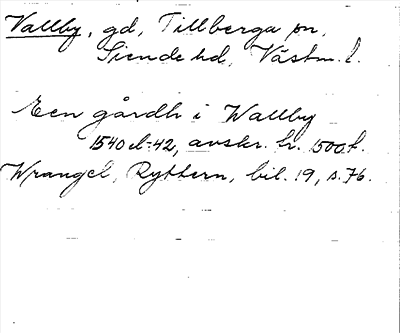 Vallby, gd, Tillberga sn,
Siende hd, Västm. l.
Een gårdh i Wallby
1540 el. 42, avskr. fr. 1500t.
Wrangel, Ryttern, bil. 19, s. 76.